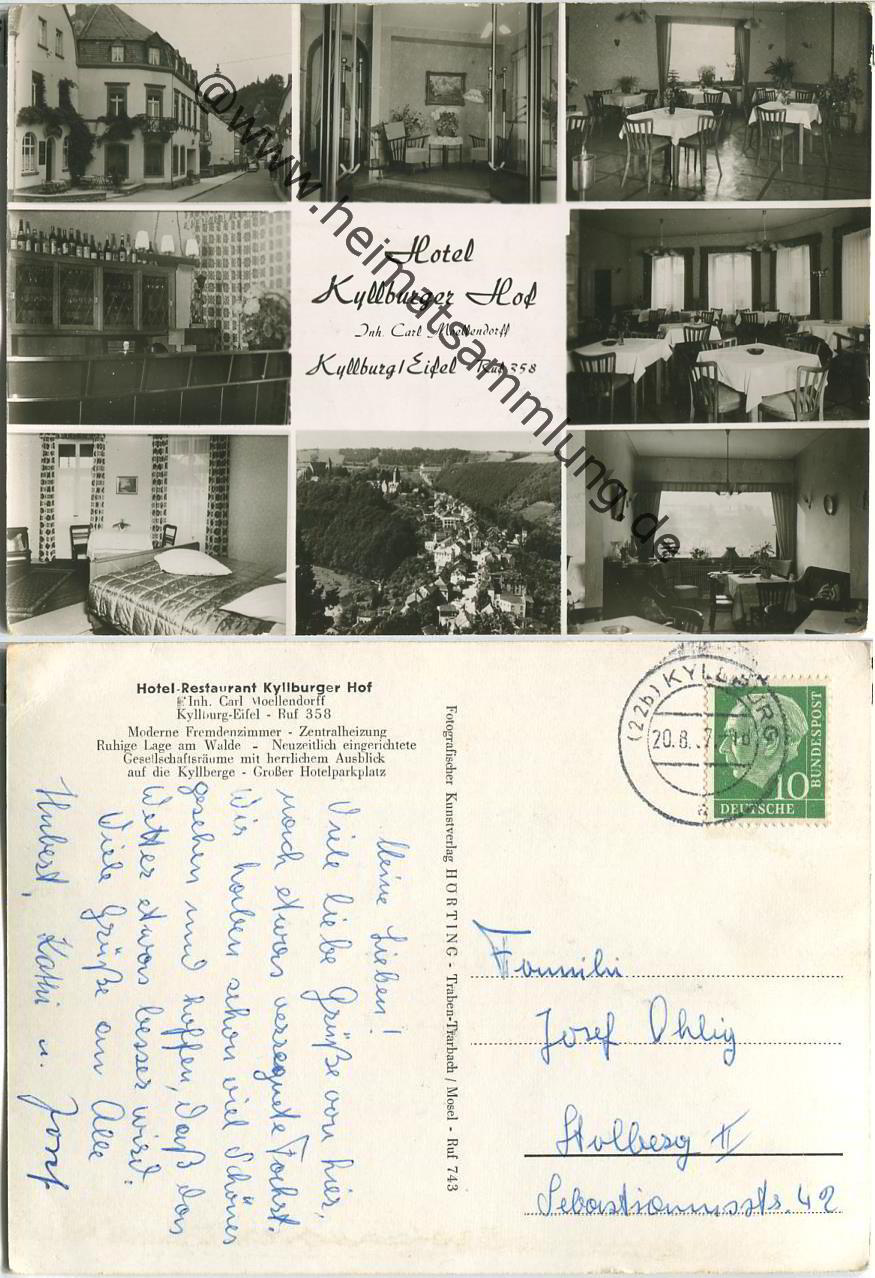 Hotel
Kyllburger Hof
Inh. Carl Moellendorff
Kyllburg/Eifel Ruf 358
@www.heimatsammlung.de
Hotel-Restaurant Kyllburger Hof
Inh. Carl Moellendorff
Kyllburg-Eifel - Ruf 358
Moderne Fremdenzimmer - Zentralheizung
Ruhige Lage am Walde - Neuzeitlich eingerichtete
Gesellschaftsräume mit herrlichem Ausblick
auf die Kyllberge - Großer Hotelparkplatz
Meine Lieben!
Viele liebe Grüße von hier,
nach etwas verregnete
Wir haben schon viel Schönes
gesehen und hoffen, daß das
Wetter etwas besser wird.
Viele Grüße an Alle
Hubert, Kathi u. Josef
Fotografischer Kunstverlag HÖRTING - Traben-Trarbach / Mosel - Ruf 743
(22b) KYLLBURG
20.8. 7-18
a
10
DEUTSCHE
BUNDESPOST
Familie
Josef Ohlig
Stolberg II
Sebastianusstr. 42